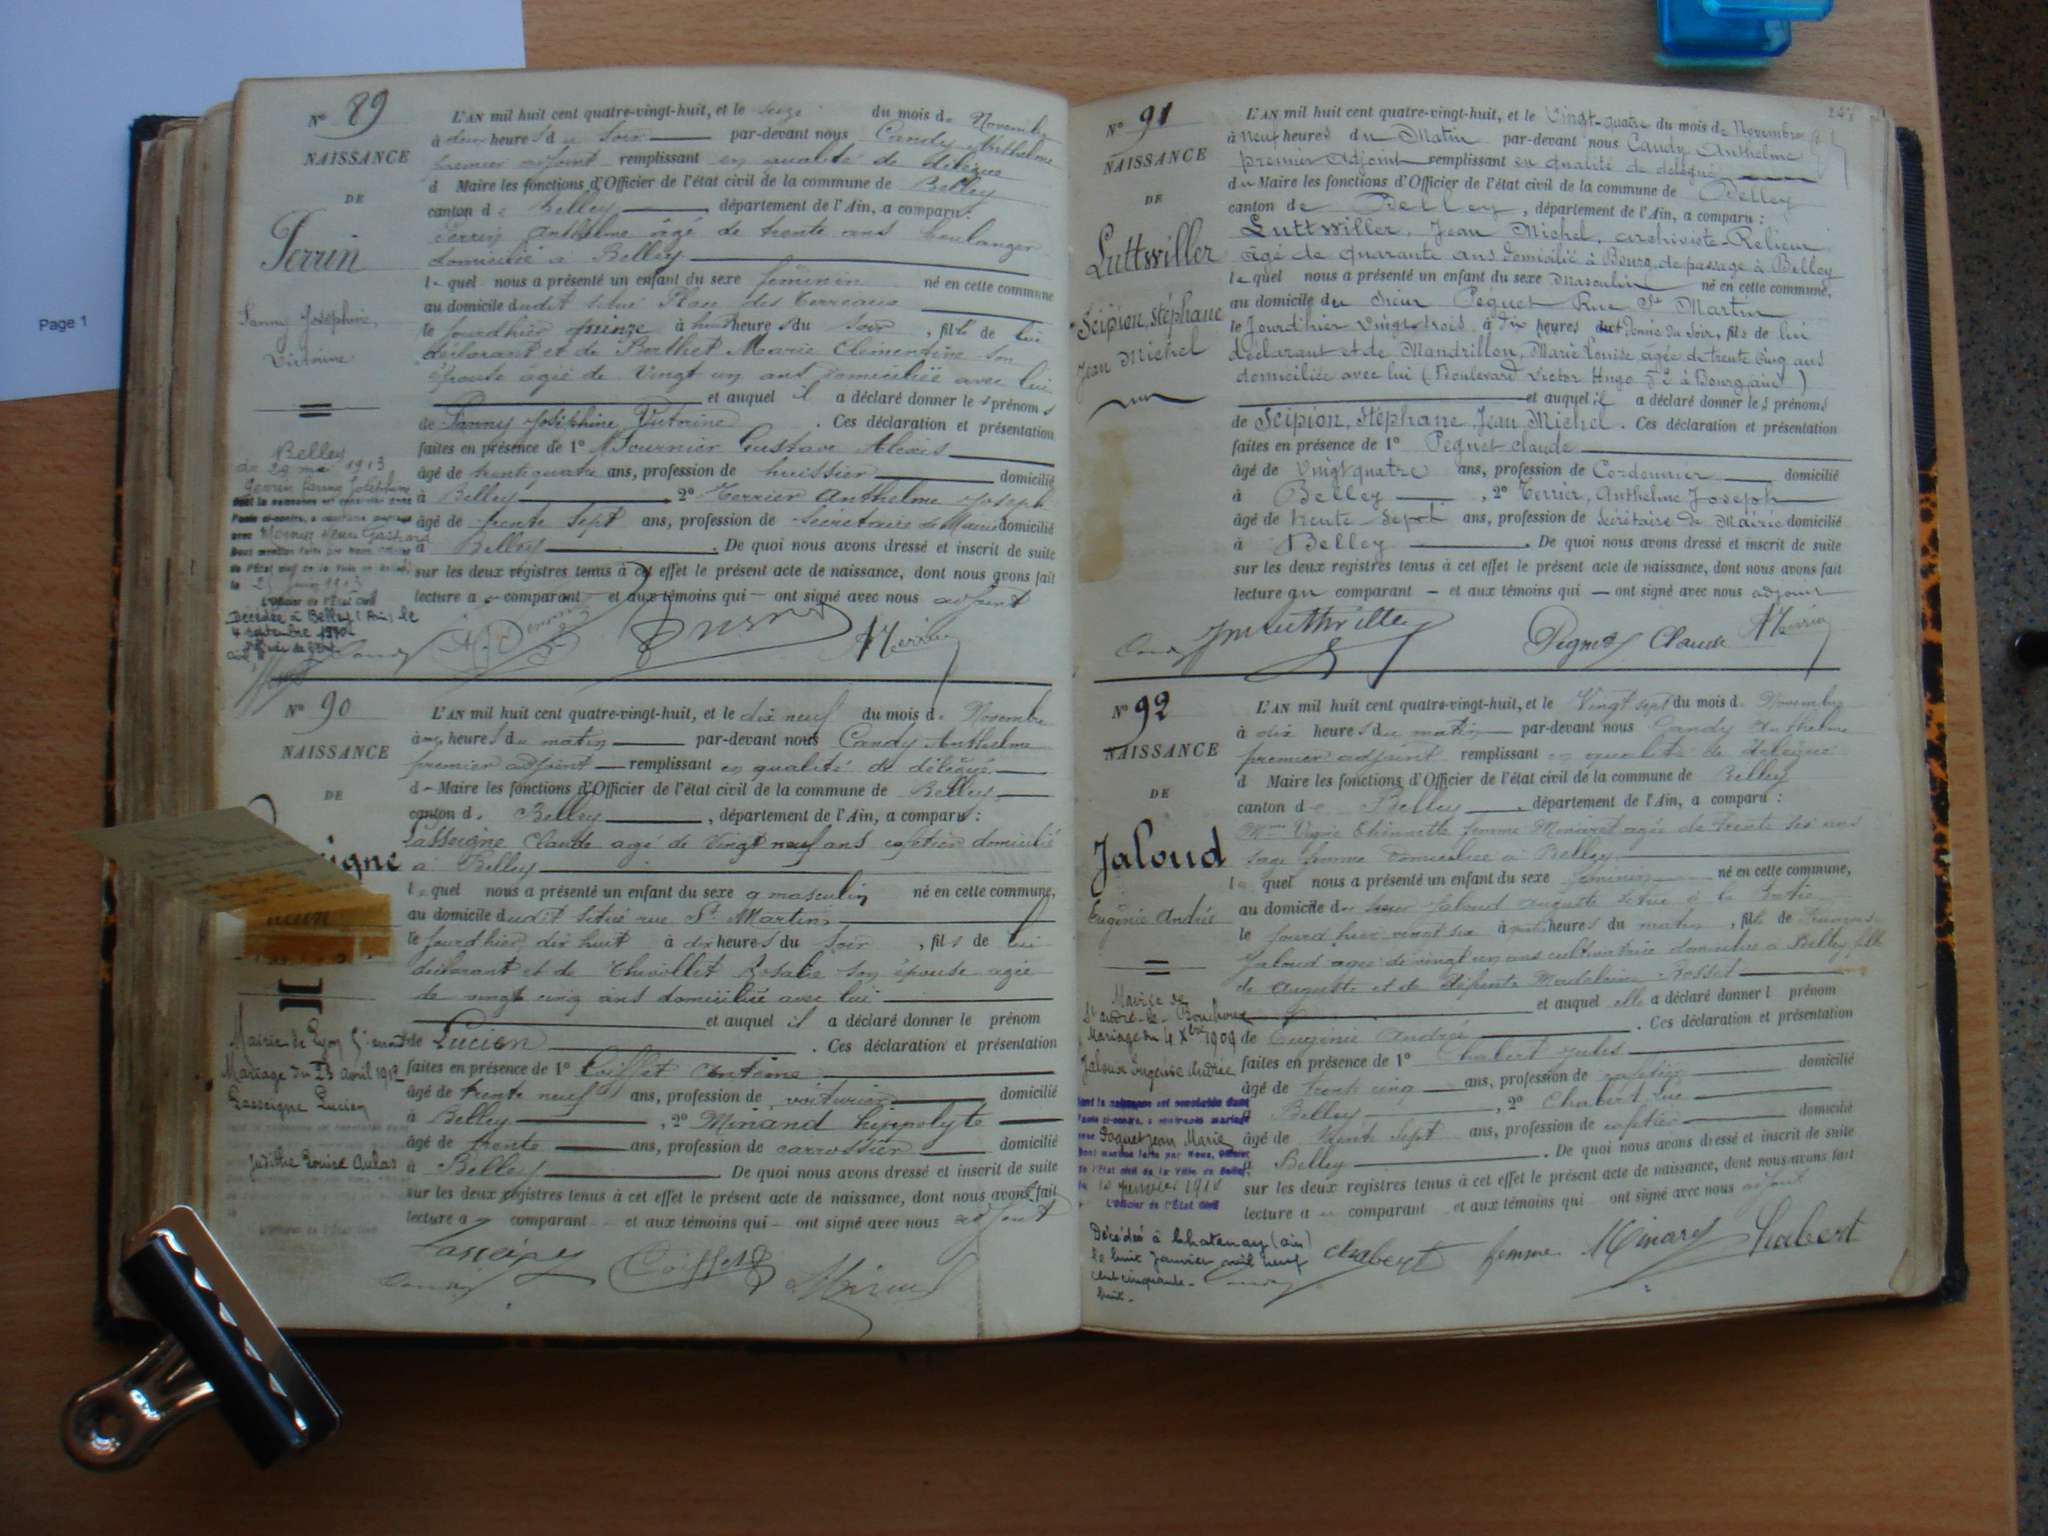 Page 1
N° 89
NAISSANCE
DE
Perrin
Fanny Joséphine,
Victorine
L'AN mil huit cent quatre-vingt-huit, et le seize du mois de Novembre
à deux heures du soir par-devant nous Candy Anthelme
premier adjoint remplissant en qualité de délégué
d Maire les fonctions d'Officier de l'état civil de la commune de Belley
canton de Belley, département de l'Ain, a comparu :
Perrin Anthelme âgé de trente ans boulanger
domicilié à Belley
lequel nous a présenté un enfant du sexe féminin né en cette commune
au domicile dudit situé Place des Terreaux
le jourd'hier quinze à huit heures du soir, fille de lui
déclarant et de Berthet Marie Clémentine son
épouse âgée de vingt un ans domiciliée avec lui
et auquel il a déclaré donner les prénoms
de Fanny Joséphine Victorine. Ces déclaration et présentation
faites en présence de 1° M. Fournier Gustave Alexis
âgé de trente quatre ans, profession de huissier domicilié
à Belley 2° Terrier Anthelme Joseph
âgé de trente sept ans, profession de Secrétaire de Mairie domicilié
à Belley. De quoi nous avons dressé et inscrit de suite
sur les deux registres tenus à cet effet le présent acte de naissance, dont nous avons fait
lecture a comparant et aux témoins qui ont signé avec nous adjoint
Belley
29 mai 1913
Perrin Fanny Joséphine
Décédée à Belley (Ain) le
4 septembre 19
N° 90
NAISSANCE
DE
L'AN mil huit cent quatre-vingt-huit, et le dix neuf du mois de Novembre
à heures du matin par-devant nous Candy Anthelme
premier adjoint remplissant en qualité de délégué
d Maire les fonctions d'Officier de l'état civil de la commune de Belley
canton de Belley, département de l'Ain, a comparu :
Lasseigne Claude agé de Vingt neuf ans cafetier domicilié
à Belley
lequel nous a présenté un enfant du sexe masculin né en cette commune,
au domicile dudit situé rue St Martin
le jourd'hier dix huit à dix heures du soir, fils de lui
déclarant et de Thivollet Rosalie son épouse agée
de vingt cinq ans domiciliée avec lui
et auquel il a déclaré donner le prénom
de Lucien. Ces déclaration et présentation
faites en présence de 1° Coiffet Antoine
âgé de trente neuf ans, profession de voiturier domicilié
à Belley, 2° Minand hippolyte
âgé de trente ans, profession de carrossier domicilié
à Belley De quoi nous avons dressé et inscrit de suite
sur les deux registres tenus à cet effet le présent acte de naissance, dont nous avons fait
lecture a comparant et aux témoins qui ont signé avec nous adjoint
Mairie de Lyon
Mariage du 23 avril 1912
Lasseigne Lucien
Judithe Louise Aulas
L'Officier de l'État Civil
N° 91
NAISSANCE
DE
Luttwiller
Scipion, Stéphane
Jean Michel
L'AN mil huit cent quatre-vingt-huit, et le Vingt-quatre du mois de Novembre
à neuf heures du Matin par-devant nous Candy Anthelme
premier Adjoint remplissant en qualité de délégué
du Maire les fonctions d'Officier de l'état civil de la commune de Belley
canton de Belley, département de l'Ain, a comparu :
Luttwiller, Jean Michel, archiviste-Relieur
âgé de quarante ans domicilié à Bourg, de passage à Belley
lequel nous a présenté un enfant du sexe masculin né en cette commune,
au domicile du sieur Peguet Rue St Martin
le Jourd'hier vingt-trois à dix heures et demie du soir, fils de lui
déclarant et de Mandrillon, Marie Louise âgée de trente cinq ans
domiciliée avec lui (Boulevard Victor Hugo à Bourg ain)
et auquel il a déclaré donner les prénoms
de Scipion, Stéphane, Jean, Michel. Ces déclaration et présentation
faites en présence de 1° Peguet claude
âgé de vingt quatre ans, profession de Cordonnier domicilié
à Belley, 2° Terrier, Anthelme Joseph
âgé de trente Sept ans, profession de Secrétaire de Mairie domicilié
à Belley. De quoi nous avons dressé et inscrit de suite
sur les deux registres tenus à cet effet le présent acte de naissance, dont nous avons fait
lecture au comparant et aux témoins qui ont signé avec nous adjoint
Peguet Claude
N° 92
NAISSANCE
DE
Jaloud
Eugénie Andrée
L'AN mil huit cent quatre-vingt-huit, et le Vingt sept du mois de Novembre
à dix heures du matin par-devant nous Candy Anthelme
premier adjoint remplissant en qualité de délégué
d Maire les fonctions d'Officier de l'état civil de la commune de Belley
canton de Belley, département de l'Ain, a comparu :
Mme Vigne Etiennette femme Minaret agée de trente six ans
sage femme domiciliée à Belley
l quel nous a présenté un enfant du sexe féminin né en cette commune,
au domicile du sieur Jaloud Auguste situé à
le jourd'hier vingt six à heures du matin, fille de
Jaloud agée de vingt un ans cultivatrice domiciliée à Belley fille
de Auguste et de
et auquel elle a déclaré donner l prénom
de Eugénie Andrée. Ces déclaration et présentation
faites en présence de 1° Chabert Jules
âgé de trente cinq ans, profession de cafetier domicilié
Belley, 2° Chabert Luc
âgé de trente sept ans, profession de cafetier domicilié
Belley. De quoi nous avons dressé et inscrit de suite
sur les deux registres tenus à cet effet le présent acte de naissance, dont nous avons fait
lecture a comparant et aux témoins qui ont signé avec nous adjoint
Mairie de
Mariage du 4 Xbre 1909
Jaloud Eugénie Andrée
Jean Marie
L'Officier de l'État Civil
Décédée à Chatenay (ain)
le huit Janvier mil neuf
cent cinquante-
huit.
Chabert femme Minaret Chabert